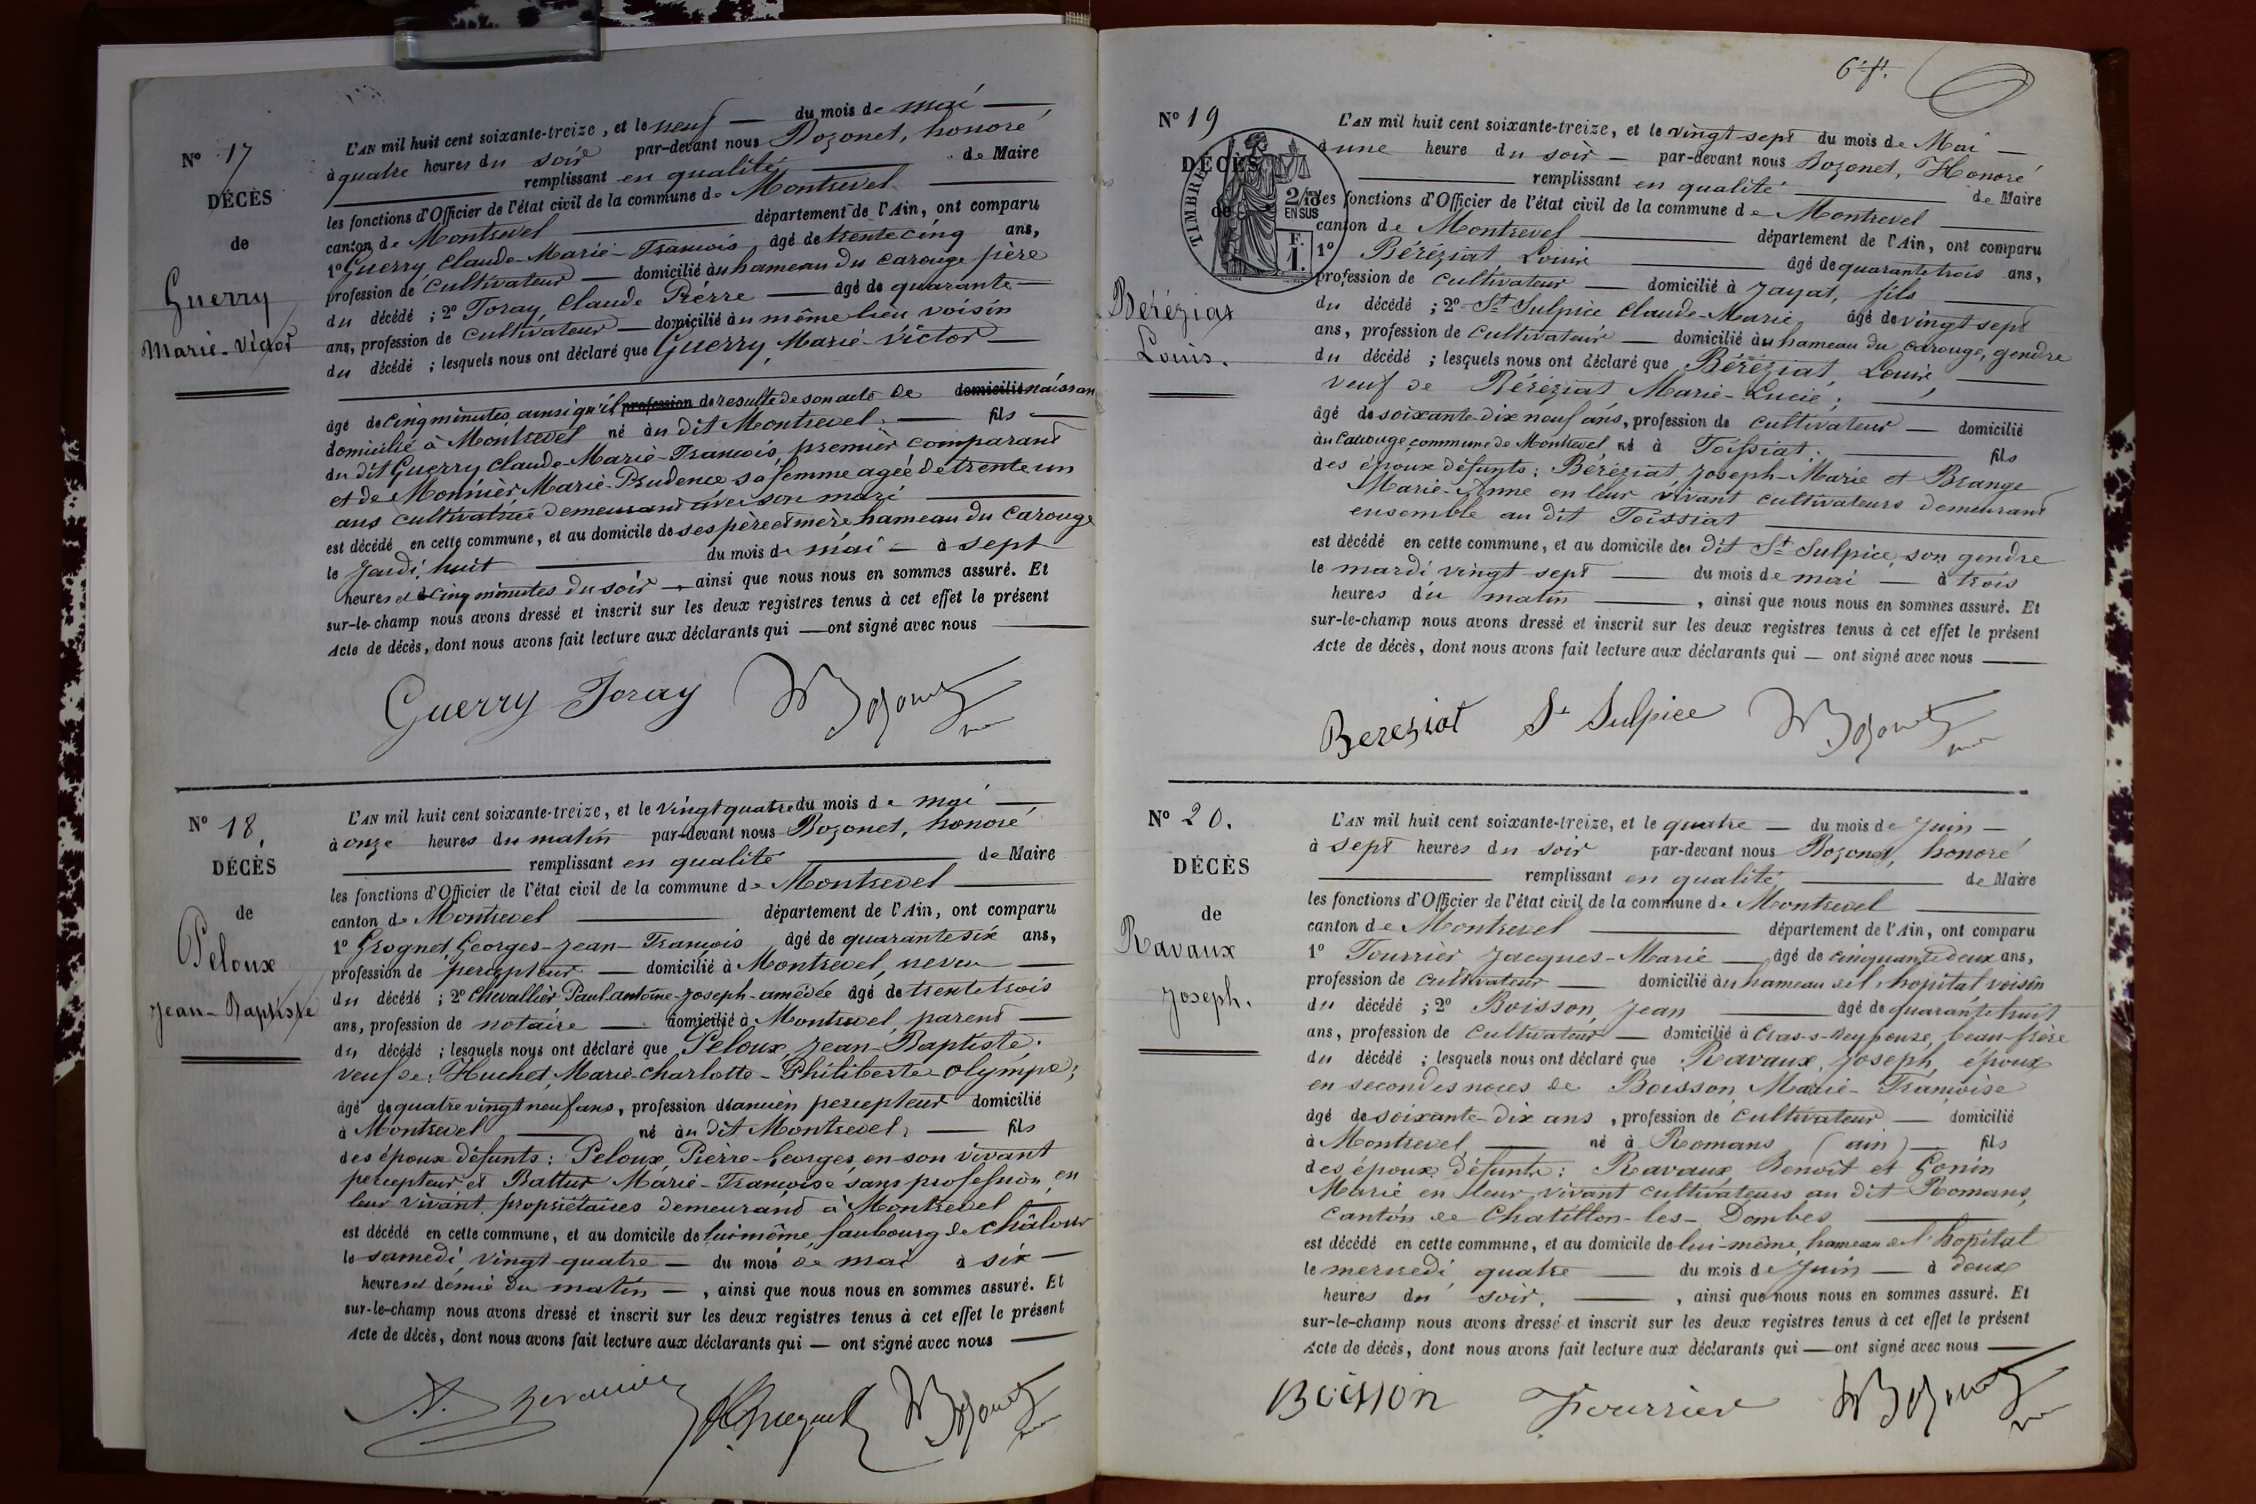 N° 17
DÉCÈS
de
Guerry
Marie-Victor
L'AN mil huit cent soixante-treize, et le neuf du mois de mai
à quatre heures du soir par-devant nous Bozonet, honoré
remplissant en qualité de Maire
les fonctions d'Officier de l'état civil de la commune de Montrevel
canton de Montrevel département de l'Ain, ont comparu
1° Guerry, Claude-Marie-François, âgé de trente cinq ans,
profession de cultivateur domicilié au hameau du carouge père
du décédé ; 2° Foray, Claude Pierre âgé de quarante
ans, profession de cultivateur domicilié au même lieu voisin
du décédé ; lesquels nous ont déclaré que Guerry, Marie-Victor
âgé de cinq minutes, ainsi qu'il profession de resulte de son acte de domicilié naissan
domicilié à Montrevel né au dit Montrevel, fils
du dit Guerry Claude-Marie-François, premier comparant
et de Monnier, Marie-Prudence sa femme agée de trente un
ans cultivatrice demeurant avec son mari
est décédé en cette commune, et au domicile de ses père et mère hameau du Carouge
le Jeudi, huit du mois de mai à sept
heures et cinq minutes du soir, ainsi que nous nous en sommes assuré. Et
sur-le-champ nous avons dressé et inscrit sur les deux registres tenus à cet effet le présent
Acte de décès, dont nous avons fait lecture aux déclarants qui ont signé avec nous
Guerry Foray Bozonet
N° 18,
DÉCÈS
de
Peloux
Jean-Baptiste
L'AN mil huit cent soixante-treize, et le vingt quatre du mois de mai
à onze heures du matin par-devant nous Bozonet, honoré
remplissant en qualité de Maire
les fonctions d'Officier de l'état civil de la commune de Montrevel
canton de Montrevel département de l'Ain, ont comparu
1° Grognet, Georges-Jean-François âgé de quarante six ans,
profession de percepteur domicilié à Montrevel, neveu
du décédé ; 2° Chevallier Paul-antoine-Joseph-amédée âgé de trente trois
ans, profession de notaire domicilié à Montrevel, parent
du décédé ; lesquels nous ont déclaré que Peloux, Jean-Baptiste,
veuf de: Huchet, Marie-Charlotte-Philiberte-Olympe;
âgé de quatre vingt neuf ans, profession d'ancien percepteur domicilié
à Montrevel né au dit Montrevel, fils
des époux défunts: Peloux, Pierre-Georges, en son vivant
percepteur et Battur Marie-Françoise, sans profession, en
leur vivant, propriétaires demeurand à Montrevel
est décédé en cette commune, et au domicile de lui même, faubourg de Châlons
le samedi, vingt-quatre du mois de mai à six
heures et demie du matin, ainsi que nous nous en sommes assuré. Et
sur-le-champ nous avons dressé et inscrit sur les deux registres tenus à cet effet le présent
Acte de décès, dont nous avons fait lecture aux déclarants qui ont signé avec nous
Bozonet
6e ft.
N° 19
DÉCÈS
de
TIMBRE
2/10
EN SUS
F.
1.
Béréziat
Louis.
L'AN mil huit cent soixante-treize, et le vingt sept du mois de Mai
à une heure du soir par-devant nous Bozonet, Honoré
remplissant en qualité de Maire
les fonctions d'Officier de l'état civil de la commune de Montrevel
canton de Montrevel département de l'Ain, ont comparu
1° Béréziat, Louis âgé de quarante trois ans,
profession de cultivateur domicilié à Jayat, fils
du décédé ; 2° St Sulpice Claude-Marie, âgé de vingt sept
ans, profession de cultivateur domicilié au hameau du carouge, gendre
du décédé ; lesquels nous ont déclaré que Béréziat, Louis,
veuf de Béréziat Marie-Lucie;
âgé de soixante-dix neuf ans, profession de cultivateur domicilié
au Carouge, commune de Montrevel, né à Foissiat; fils
des époux défunts: Béréziat, Joseph-Marie et Brange
Marie-Anne en leur vivant cultivateurs demeurant
ensemble au dit Foissiat
est décédé en cette commune, et au domicile du dit St Sulpice, son gendre
le mardi, vingt sept du mois de mai à trois
heures du matin, ainsi que nous nous en sommes assuré. Et
sur-le-champ nous avons dressé et inscrit sur les deux registres tenus à cet effet le présent
Acte de décès, dont nous avons fait lecture aux déclarants qui ont signé avec nous
Bereziat St Sulpice Bozonet
N° 20.
DÉCÈS
de
Ravaux
Joseph.
L'AN mil huit cent soixante-treize, et le quatre du mois de Juin
à sept heures du soir par-devant nous Bozonet, honoré
remplissant en qualité de Maire
les fonctions d'Officier de l'état civil de la commune de Montrevel
canton de Montrevel département de l'Ain, ont comparu
1° Fourrier Jacques-Marie âgé de cinquante deux ans,
profession de cultivateur domicilié au hameau de l'hopital voisin
du décédé ; 2° Boisson, Jean âgé de quarante huit
ans, profession de Cultivateur domicilié à Cras-s-Reyssouze, beau-frère
du décédé ; lesquels nous ont déclaré que Ravaux, Joseph, époux
en secondes noces de Boisson, Marie-Françoise
âgé de soixante-dix ans, profession de cultivateur domicilié
à Montrevel, né à Romans (ain) fils
des époux défunts: Ravaux, Benoît et Gonin
Marie en leur vivant cultivateurs au dit Romans,
canton de Chatillon-les-Dombes
est décédé en cette commune, et au domicile de lui-même, hameau de l'hopital
le mercredi, quatre du mois de Juin à deux
heures du soir, ainsi que nous nous en sommes assuré. Et
sur-le-champ nous avons dressé et inscrit sur les deux registres tenus à cet effet le présent
Acte de décès, dont nous avons fait lecture aux déclarants qui ont signé avec nous
Boisson Fourrier Bozonet